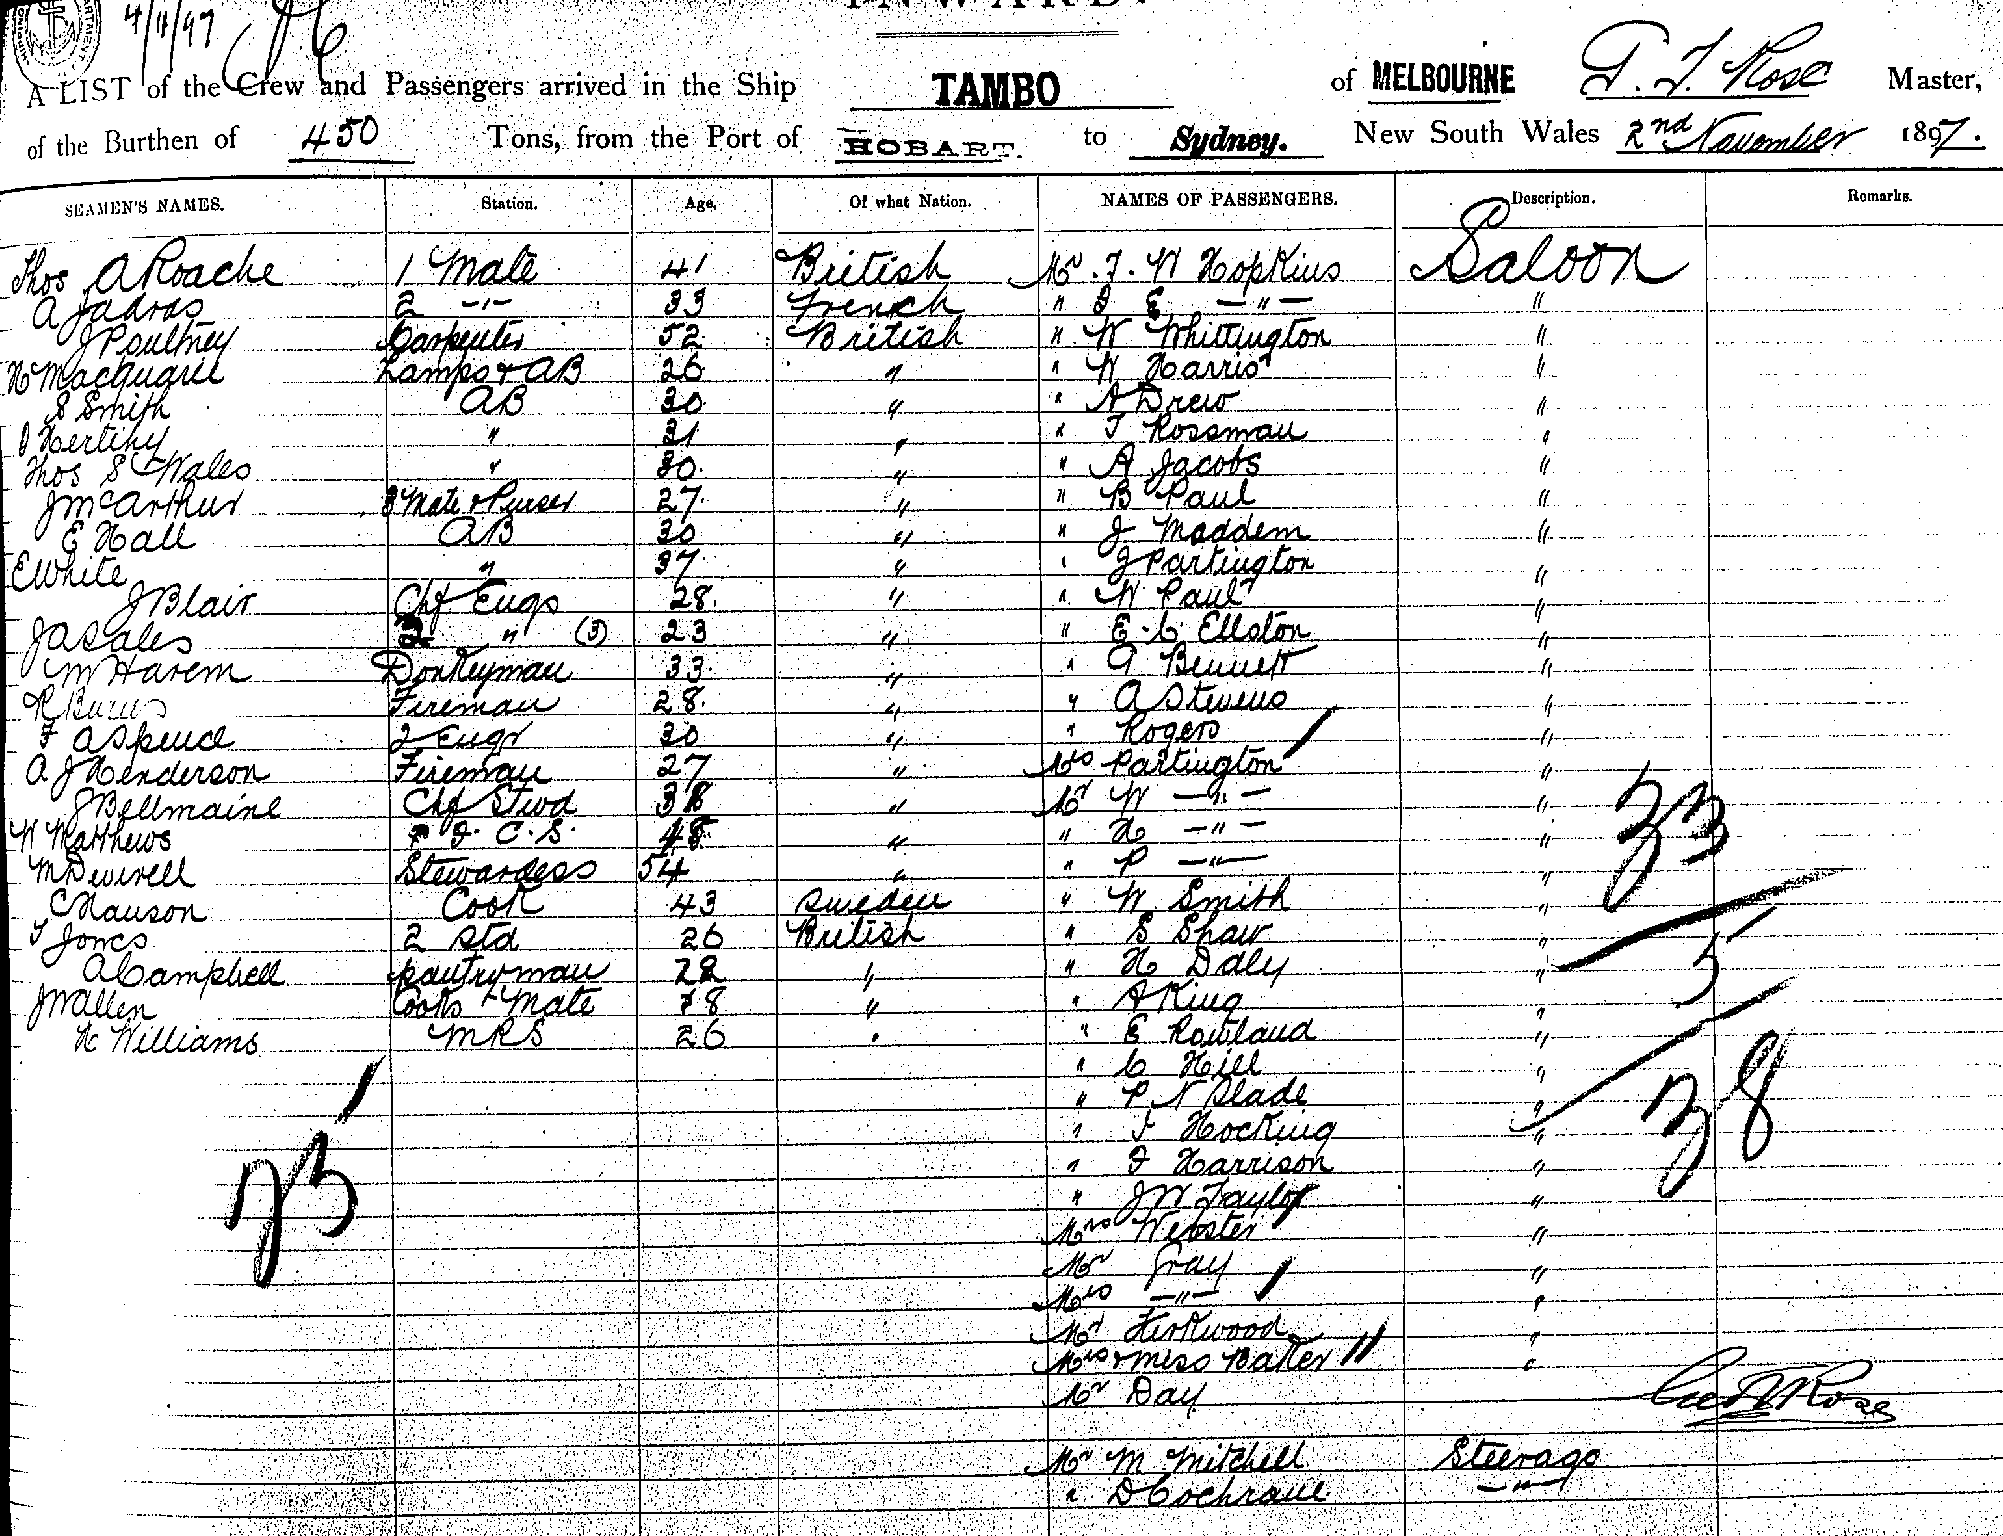 INWARD.
4/11/97
A LIST of the Crew and Passengers arrived in the Ship TAMBO of MELBOURNE G. F. Rose Master,
of the Burthen of 450 Tons, from the Port of HOBART. to Sydney. New South Wales 2nd November 1897.
SEAMEN'S NAMES. Station. Age. Of what Nation. NAMES OF PASSENGERS. Description. Remarks.
Thos A Roache 1 Mate 41 British Mr. F. W Hopkins Saloon
A Jadros 2 -"- 33 French " J E -"- "
J Poultney Carpenter 52 British " W Whittington "
H Macquarie Lamps & AB 26 " " W Harris "
S Smith AB 30 " " A Drew "
J Hertihy " 31 " " T Rossman "
Thos S Wales " 30 " " A Jacobs "
J McArthur 3 Mate & Purser 27 " " B Paul "
E Hall AB 30 " " J Maddem "
E White " 37 " " J Partington "
J Blair Chf Engr 28 " " W Paul "
J A Sales " (3) 23 " " E. C. Ellston "
W Harem Donkeyman 33 " " G Bennett "
R Burns Fireman 28 " " A Stevens "
F A Spence 2 Engr 30 " " Rogers "
A J Henderson Fireman 27 " Mrs Partington "
J Bellmaine Chf Stwd 38 " Mr W -"- "
W Matthews F. C. S. 48 " " H -"- " 33
M Deverell Stewardess 54 " " P -"- "
C Hanson Cook 43 Sweden " W Smith "
T Jones 2 Std 26 British " S Shaw " 5
A Campbell pantryman 22 " " H Daly "
J W Allen Cooks Mate 18 " " A King "
H Williams MRS 26 " " E Rowland "
" C Hill " 38
" P N Slade "
" F Hocking "
23 " J Harrison "
" J W Taylor "
Mrs Webster "
Mr Gray "
Mrs -"- "
Mr Kirkwood "
Mrs & Miss Batten "
Mr Day Geo F Rose
Mr M Mitchell Steerage
" D Cochrane -"-